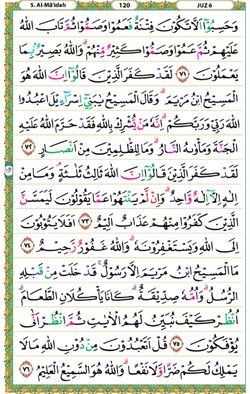 5. Al-Mā'idah 120 JUZ 6
وَحَسِبُوْٓا اَلَّا تَكُوْنَ فِتْنَةٌ فَعَمُوْا وَصَمُّوْا ثُمَّ تَابَ اللّٰهُ
عَلَيْهِمْ ثُمَّ عَمُوْا وَصَمُّوْا كَثِيْرٌ مِّنْهُمْۗ وَاللّٰهُ بَصِيْرٌۢ بِمَا
يَعْمَلُوْنَ ٧١ لَقَدْ كَفَرَ الَّذِيْنَ قَالُوْٓا اِنَّ اللّٰهَ هُوَ
الْمَسِيْحُ ابْنُ مَرْيَمَۗ وَقَالَ الْمَسِيْحُ يٰبَنِيْٓ اِسْرَاۤءِيْلَ اعْبُدُوا
اللّٰهَ رَبِّيْ وَرَبَّكُمْۗ اِنَّهٗ مَنْ يُّشْرِكْ بِاللّٰهِ فَقَدْ حَرَّمَ اللّٰهُ عَلَيْهِ
الْجَنَّةَ وَمَأْوٰىهُ النَّارُۗ وَمَا لِلظّٰلِمِيْنَ مِنْ اَنْصَارٍ ٧٢
لَقَدْ كَفَرَ الَّذِيْنَ قَالُوْٓا اِنَّ اللّٰهَ ثَالِثُ ثَلٰثَةٍۘ وَمَا مِنْ
اِلٰهٍ اِلَّآ اِلٰهٌ وَّاحِدٌۗ وَاِنْ لَّمْ يَنْتَهُوْا عَمَّا يَقُوْلُوْنَ لَيَمَسَّنَّ
الَّذِيْنَ كَفَرُوْا مِنْهُمْ عَذَابٌ اَلِيْمٌ ٧٣ اَفَلَا يَتُوْبُوْنَ
اِلَى اللّٰهِ وَيَسْتَغْفِرُوْنَهٗۗ وَاللّٰهُ غَفُوْرٌ رَّحِيْمٌ ٧٤
مَا الْمَسِيْحُ ابْنُ مَرْيَمَ اِلَّا رَسُوْلٌۚ قَدْ خَلَتْ مِنْ قَبْلِهِ
الرُّسُلُۗ وَاُمُّهٗ صِدِّيْقَةٌۗ كَانَا يَأْكُلٰنِ الطَّعَامَۗ
اُنْظُرْ كَيْفَ نُبَيِّنُ لَهُمُ الْاٰيٰتِ ثُمَّ انْظُرْ اَنّٰى
يُؤْفَكُوْنَ ٧٥ قُلْ اَتَعْبُدُوْنَ مِنْ دُوْنِ اللّٰهِ مَا لَا
يَمْلِكُ لَكُمْ ضَرًّا وَّلَا نَفْعًاۗ وَاللّٰهُ هُوَ السَّمِيْعُ الْعَلِيْمُ ٧٦